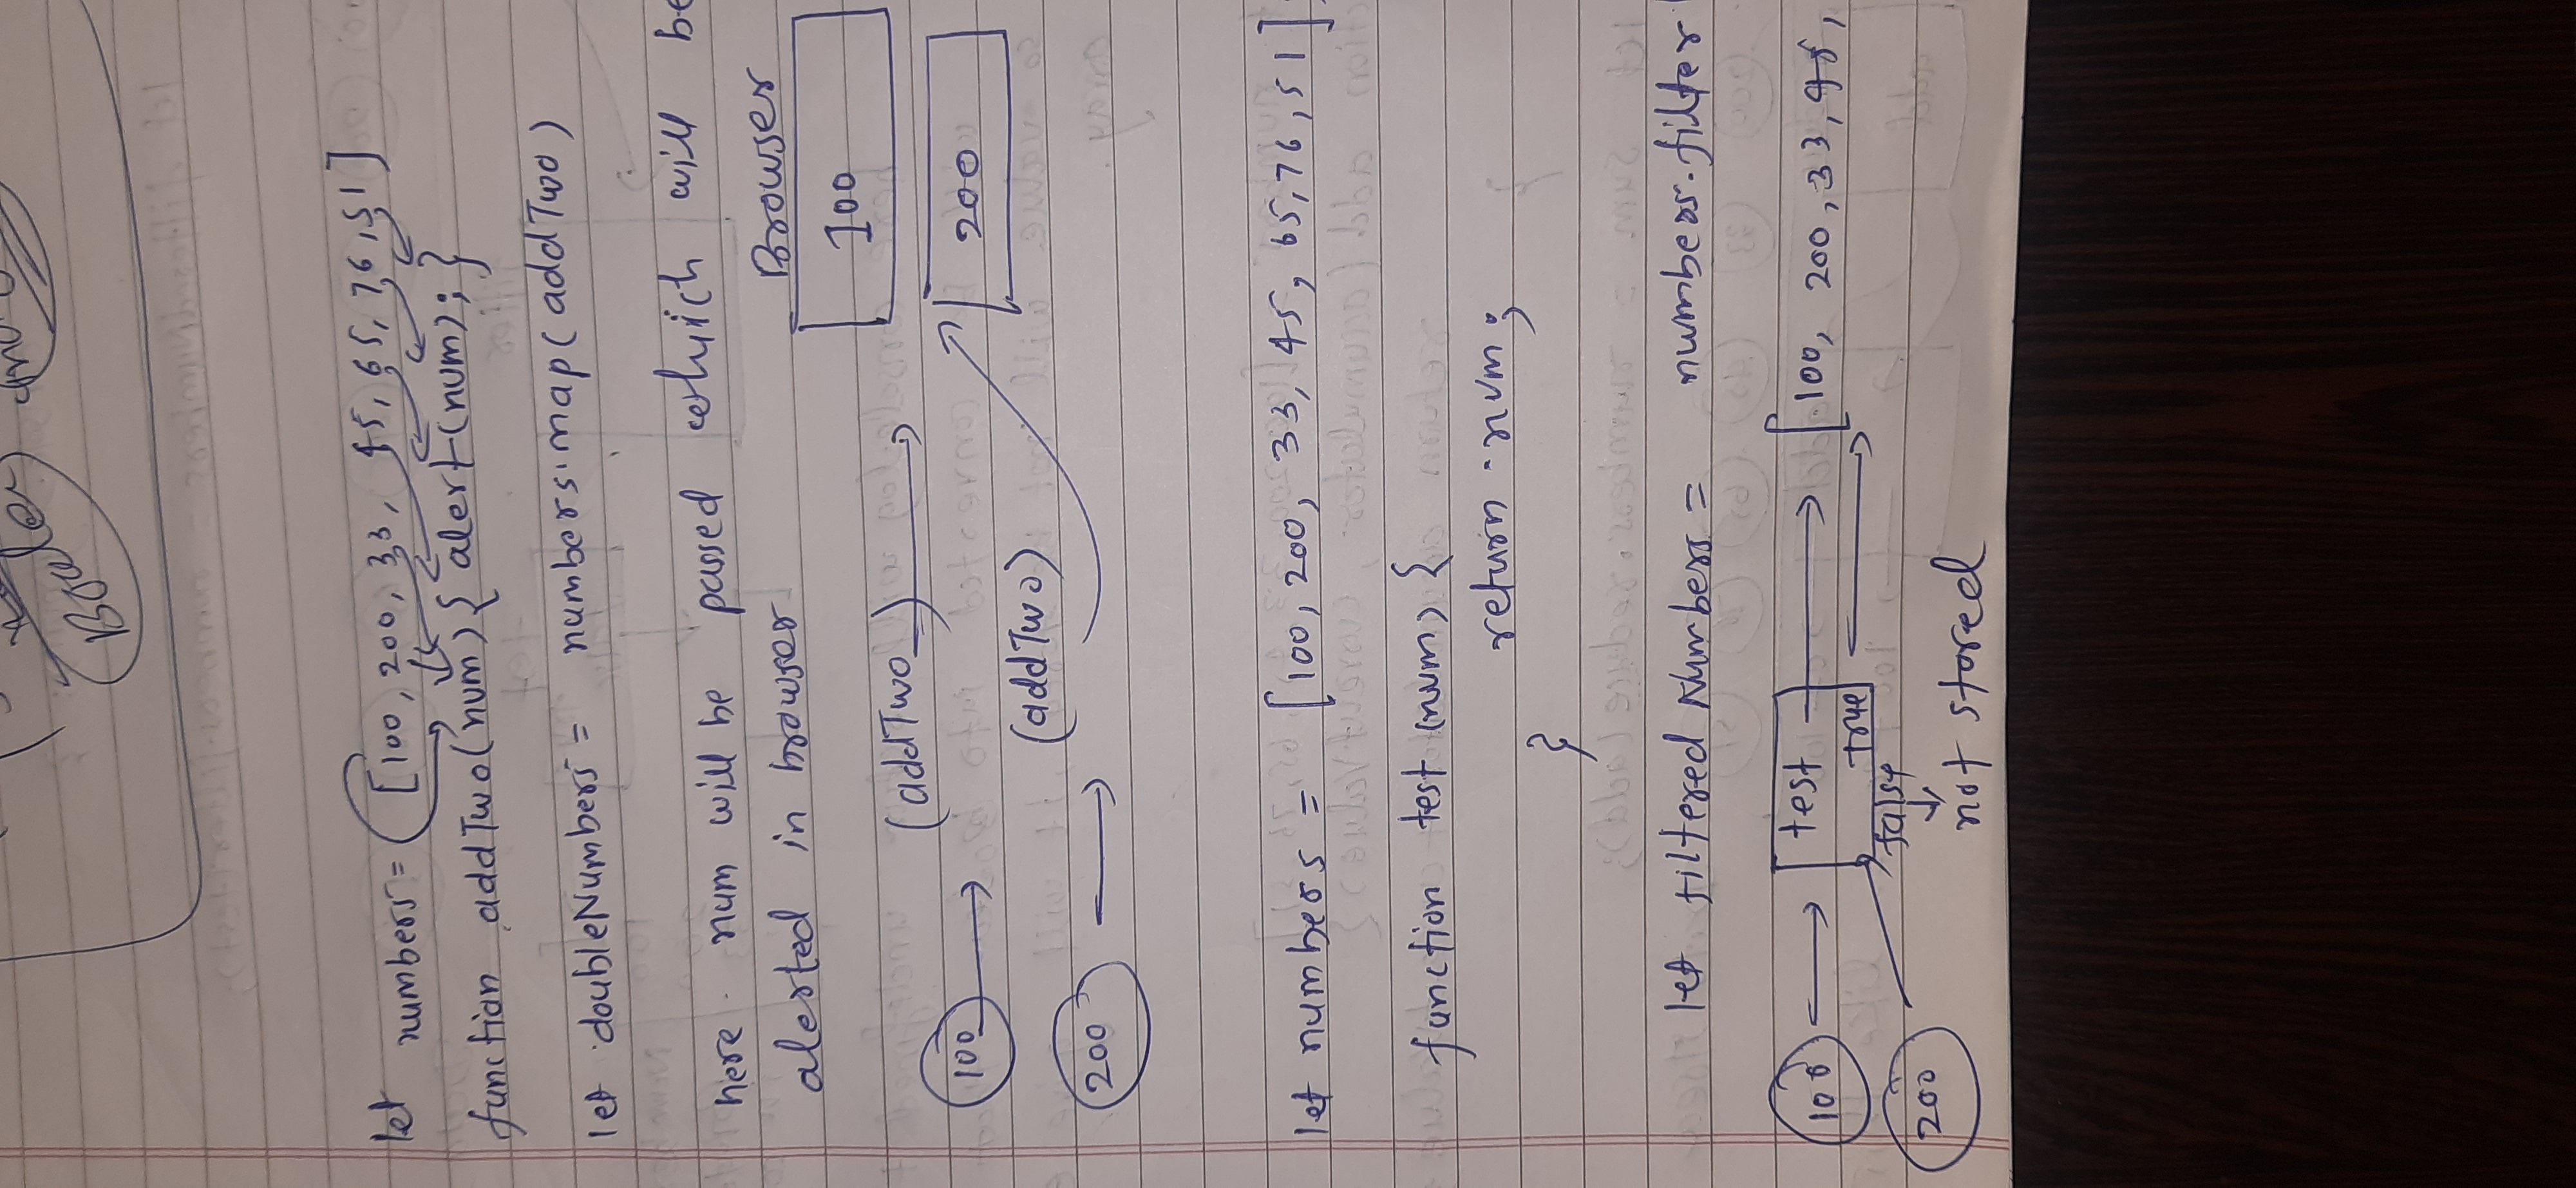 let numbers = [100, 200, 33, 45, 65, 76, 51]
function addTwo(num) { alert(num); }
let doubleNumbers = numbers.map(addTwo)
here num will be passed which will be
alerted in browser
Browser
100
(addTwo)
100
200
(addTwo)
200
let numbers = [100, 200, 33, 45, 65, 76, 51]
function test (num) {
return num;
}
let filtered Numbers = numbers.filter
100 test [100, 200, 33, 45,
true
200 false
not stored